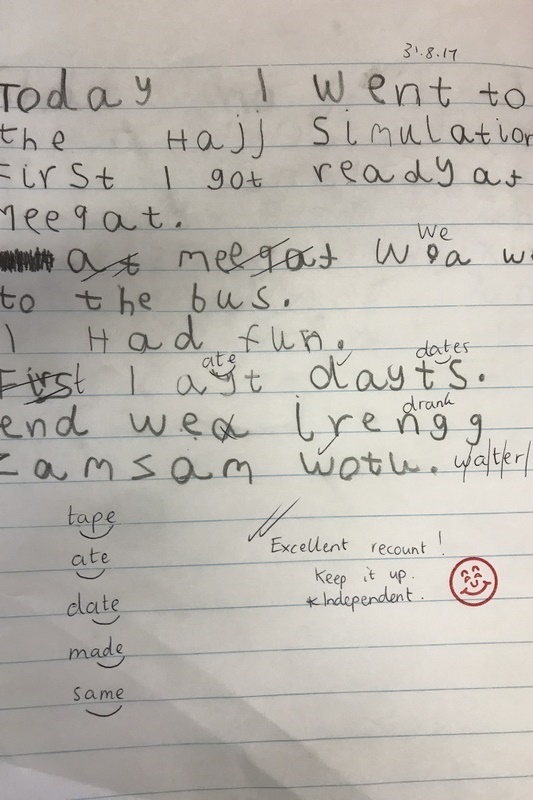 31.8.17
Today I went to
the Hajj Simulation
First I got ready at
Meeqat.
at meeqat We
to the bus.
I Had fun.
ate dates
First I ayt dayts.
drank
end wea Irengg
Zamsam wotu. wa/t/er/
tape
ate
date
made
same
Excellent recount!
Keep it up.
*Independent.